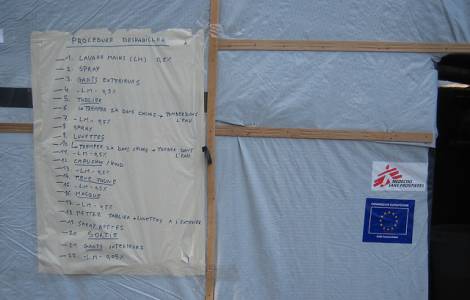 PROCEDURE DESHABILLER
1. LAVAGE MAINS (LM) 0,5%
2. SPRAY
3. GANTS EXTERIEURS
4. -LM - 0,5%
5. TABLIER
6. TREMPER DANS CHLORE → TOMBER DANS L'EAU
7. -LM - 0,5%
8 SPRAY
9. LUNETTES
10. TREMPER DANS CHLORE → TOMBER DANS L'EAU
11. -LM - 0,5%
12 CAPUCHON / HOOD
13. -LM - 0,5%
14. 
15. -LM - 0,5%
16. MASQUE
17. -LM - 0,5%
18. METTER TABLIER + LUNETTES A L'EXTERIEUR
19. SPRAY BOTTES
20 SORTIE
21. GANTS INTERIEURS
22. -LM - 0,05%
MEDECINS
SANS FRONTIERES
COMMISSION EUROPEENNE